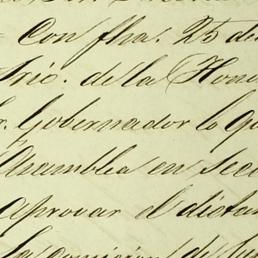 Con fha. 25 de
Srio. de la Hono
Gobernador lo q
Asamblea en sec
Aprovar el dicta
la comicion de